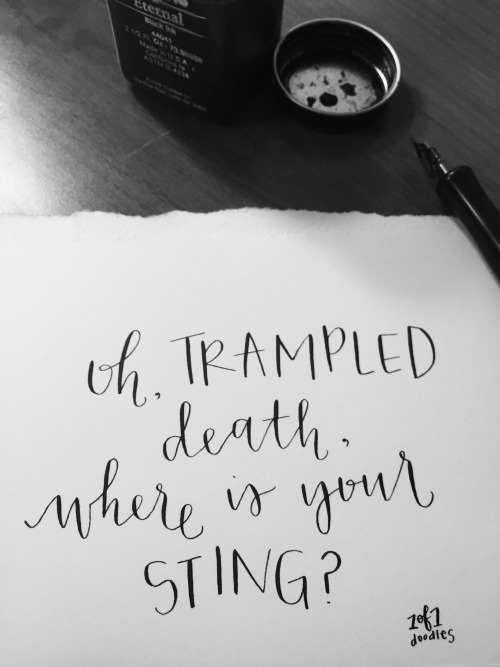 Eternal
Black Ink
44041
Made in U.S.A.
oh, TRAMPLED
death,
where is your
STING?
1of1
doodles